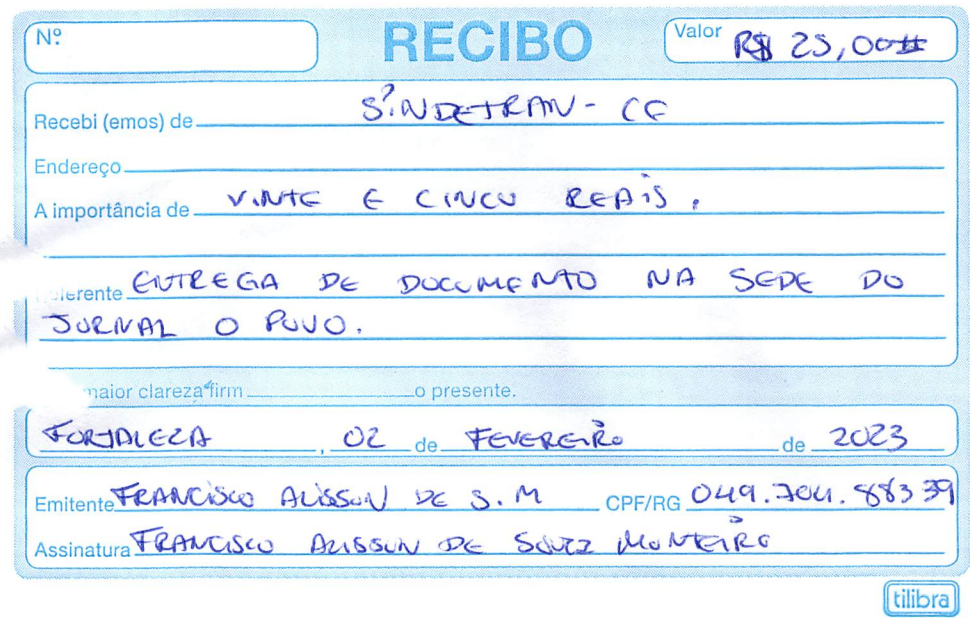 Nº RECIBO Valor R$ 25,00#
Recebi (emos) de SINDETRAN - CE
Endereço
A importância de VINTE E CINCO REAIS.
erente ENTREGA DE DOCUMENTO NA SEDE DO
JORNAL O POVO.
maior clareza firm o presente.
FORTALEZA, 02 de FEVEREIRO de 2023
Emitente FRANCISCO ALISSON DE S. M CPF/RG 049.704.883 39
Assinatura FRANCISCO ALISSON DE SOUZA MONTEIRO
tilibra